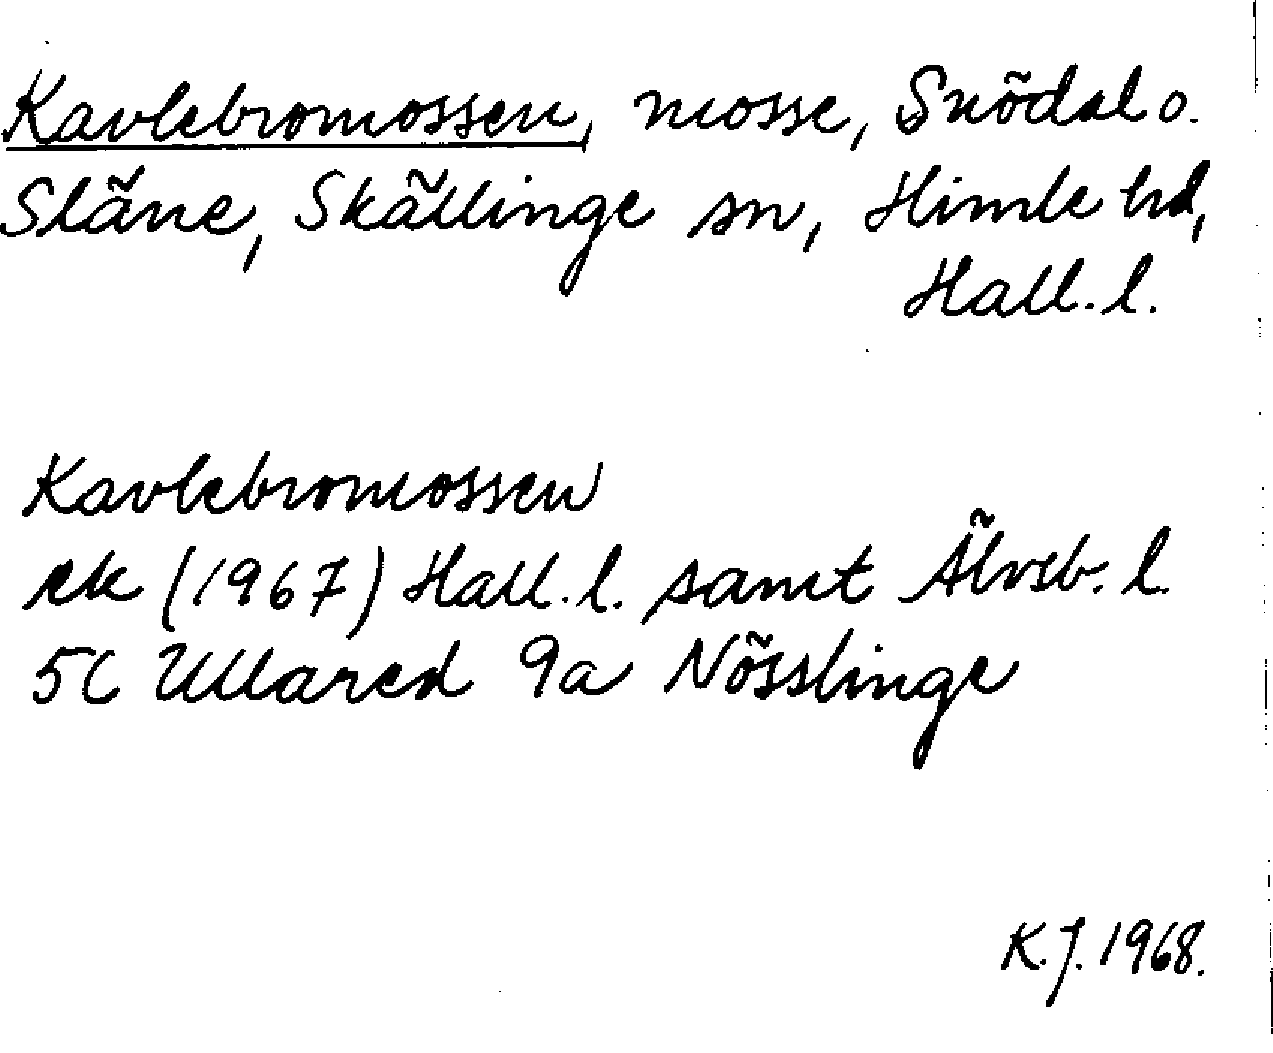 Kavlebromossen, mosse, Snödal o.
Släne, Skällinge sn, Himle hd,
Hall. l.
Kavlebromossen
ek (1967) Hall. l. samt Älvsb. l.
5C Ullared 9a Nösslinge
K.J. 1968.